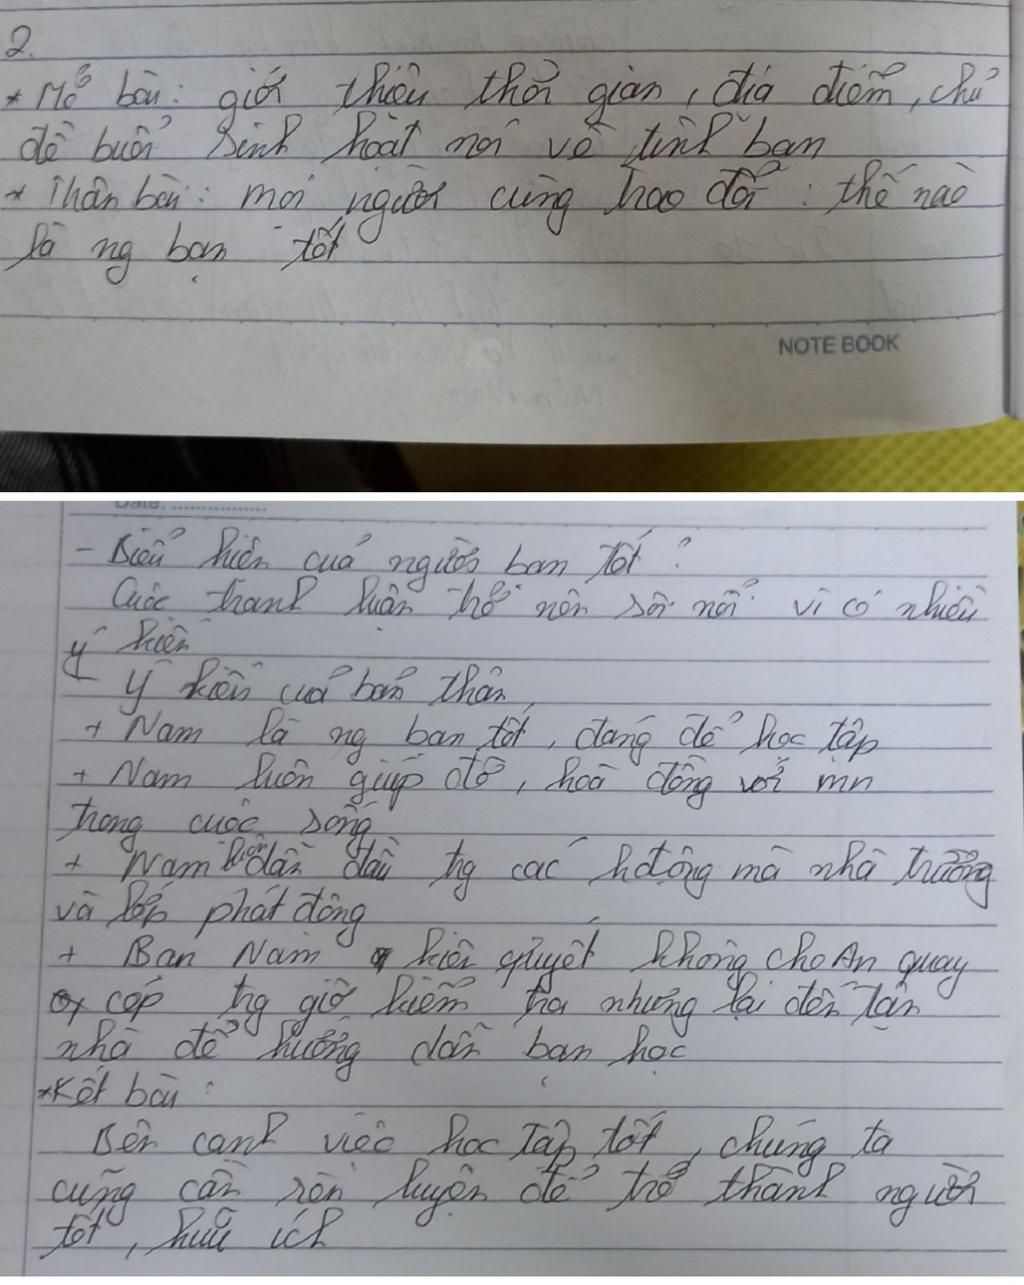 2.
* Mở bài: giới thiệu thời gian, địa điểm, chủ
đề buổi sinh hoạt nói về tình bạn
* Thân bài: mọi người cùng trao đổi: thế nào
là ng bạn tốt
NOTE BOOK
Date:
- Biểu hiện của người bạn tốt?
Cuộc tranh luận trở nên sôi nổi vì có nhiều
ý kiến
- Ý kiến của bản thân
+ Nam là ng bạn tốt, đáng để học tập
+ Nam luôn giúp đỡ, hoà đồng với mn
trong cuộc sống
+ Nam luôn dẫn đầu trg các hđộng mà nhà trường
và lớp phát động
+ Bạn Nam kiên quyết không cho An quay
cóp trg giờ kiểm tra nhưng lại đến tận
nhà để hướng dẫn bạn học
*Kết bài:
Bên cạnh việc học tập tốt, chúng ta
cũng cần rèn luyện để trở thành người
tốt, hữu ích